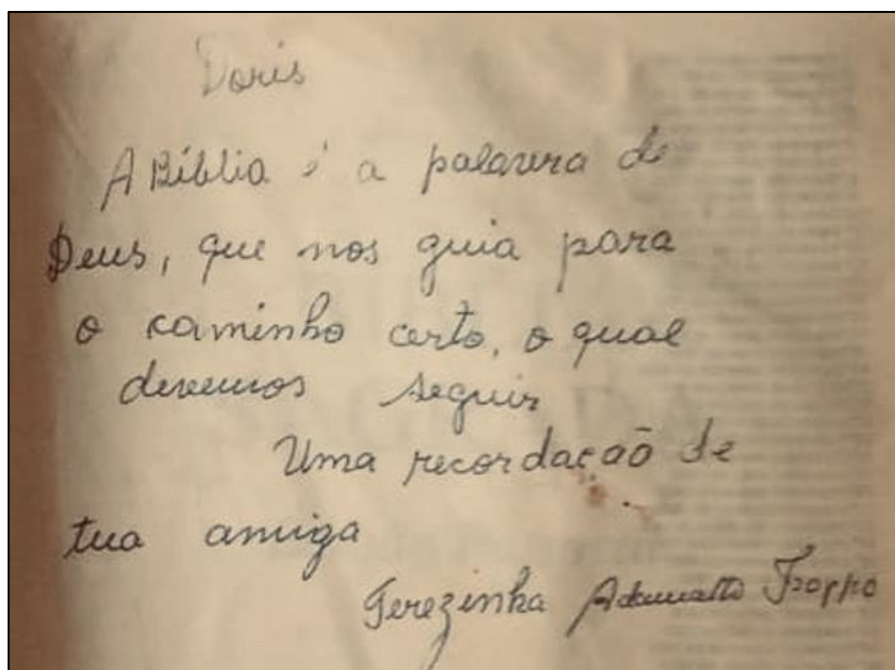 Doris
A Bíblia é a palavra de
Deus, que nos guia para
o caminho certo, o qual
devemos seguir
Uma recordação de
tua amiga
Terezinha